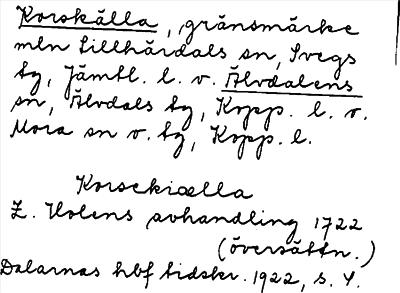 Korskälla, gränsmärke
mln Lillhärdals sn, Svegs
tg, Jämtl. l. o. Älvdalens
sn, Älvdals tg, Kopp. l. o.
Mora sn o. tg, Kopp. l.
Korsekiælla
E. Holens avhandling 1722
(översättn.)
Dalarnas hbf tidskr. 1922, s. 4.